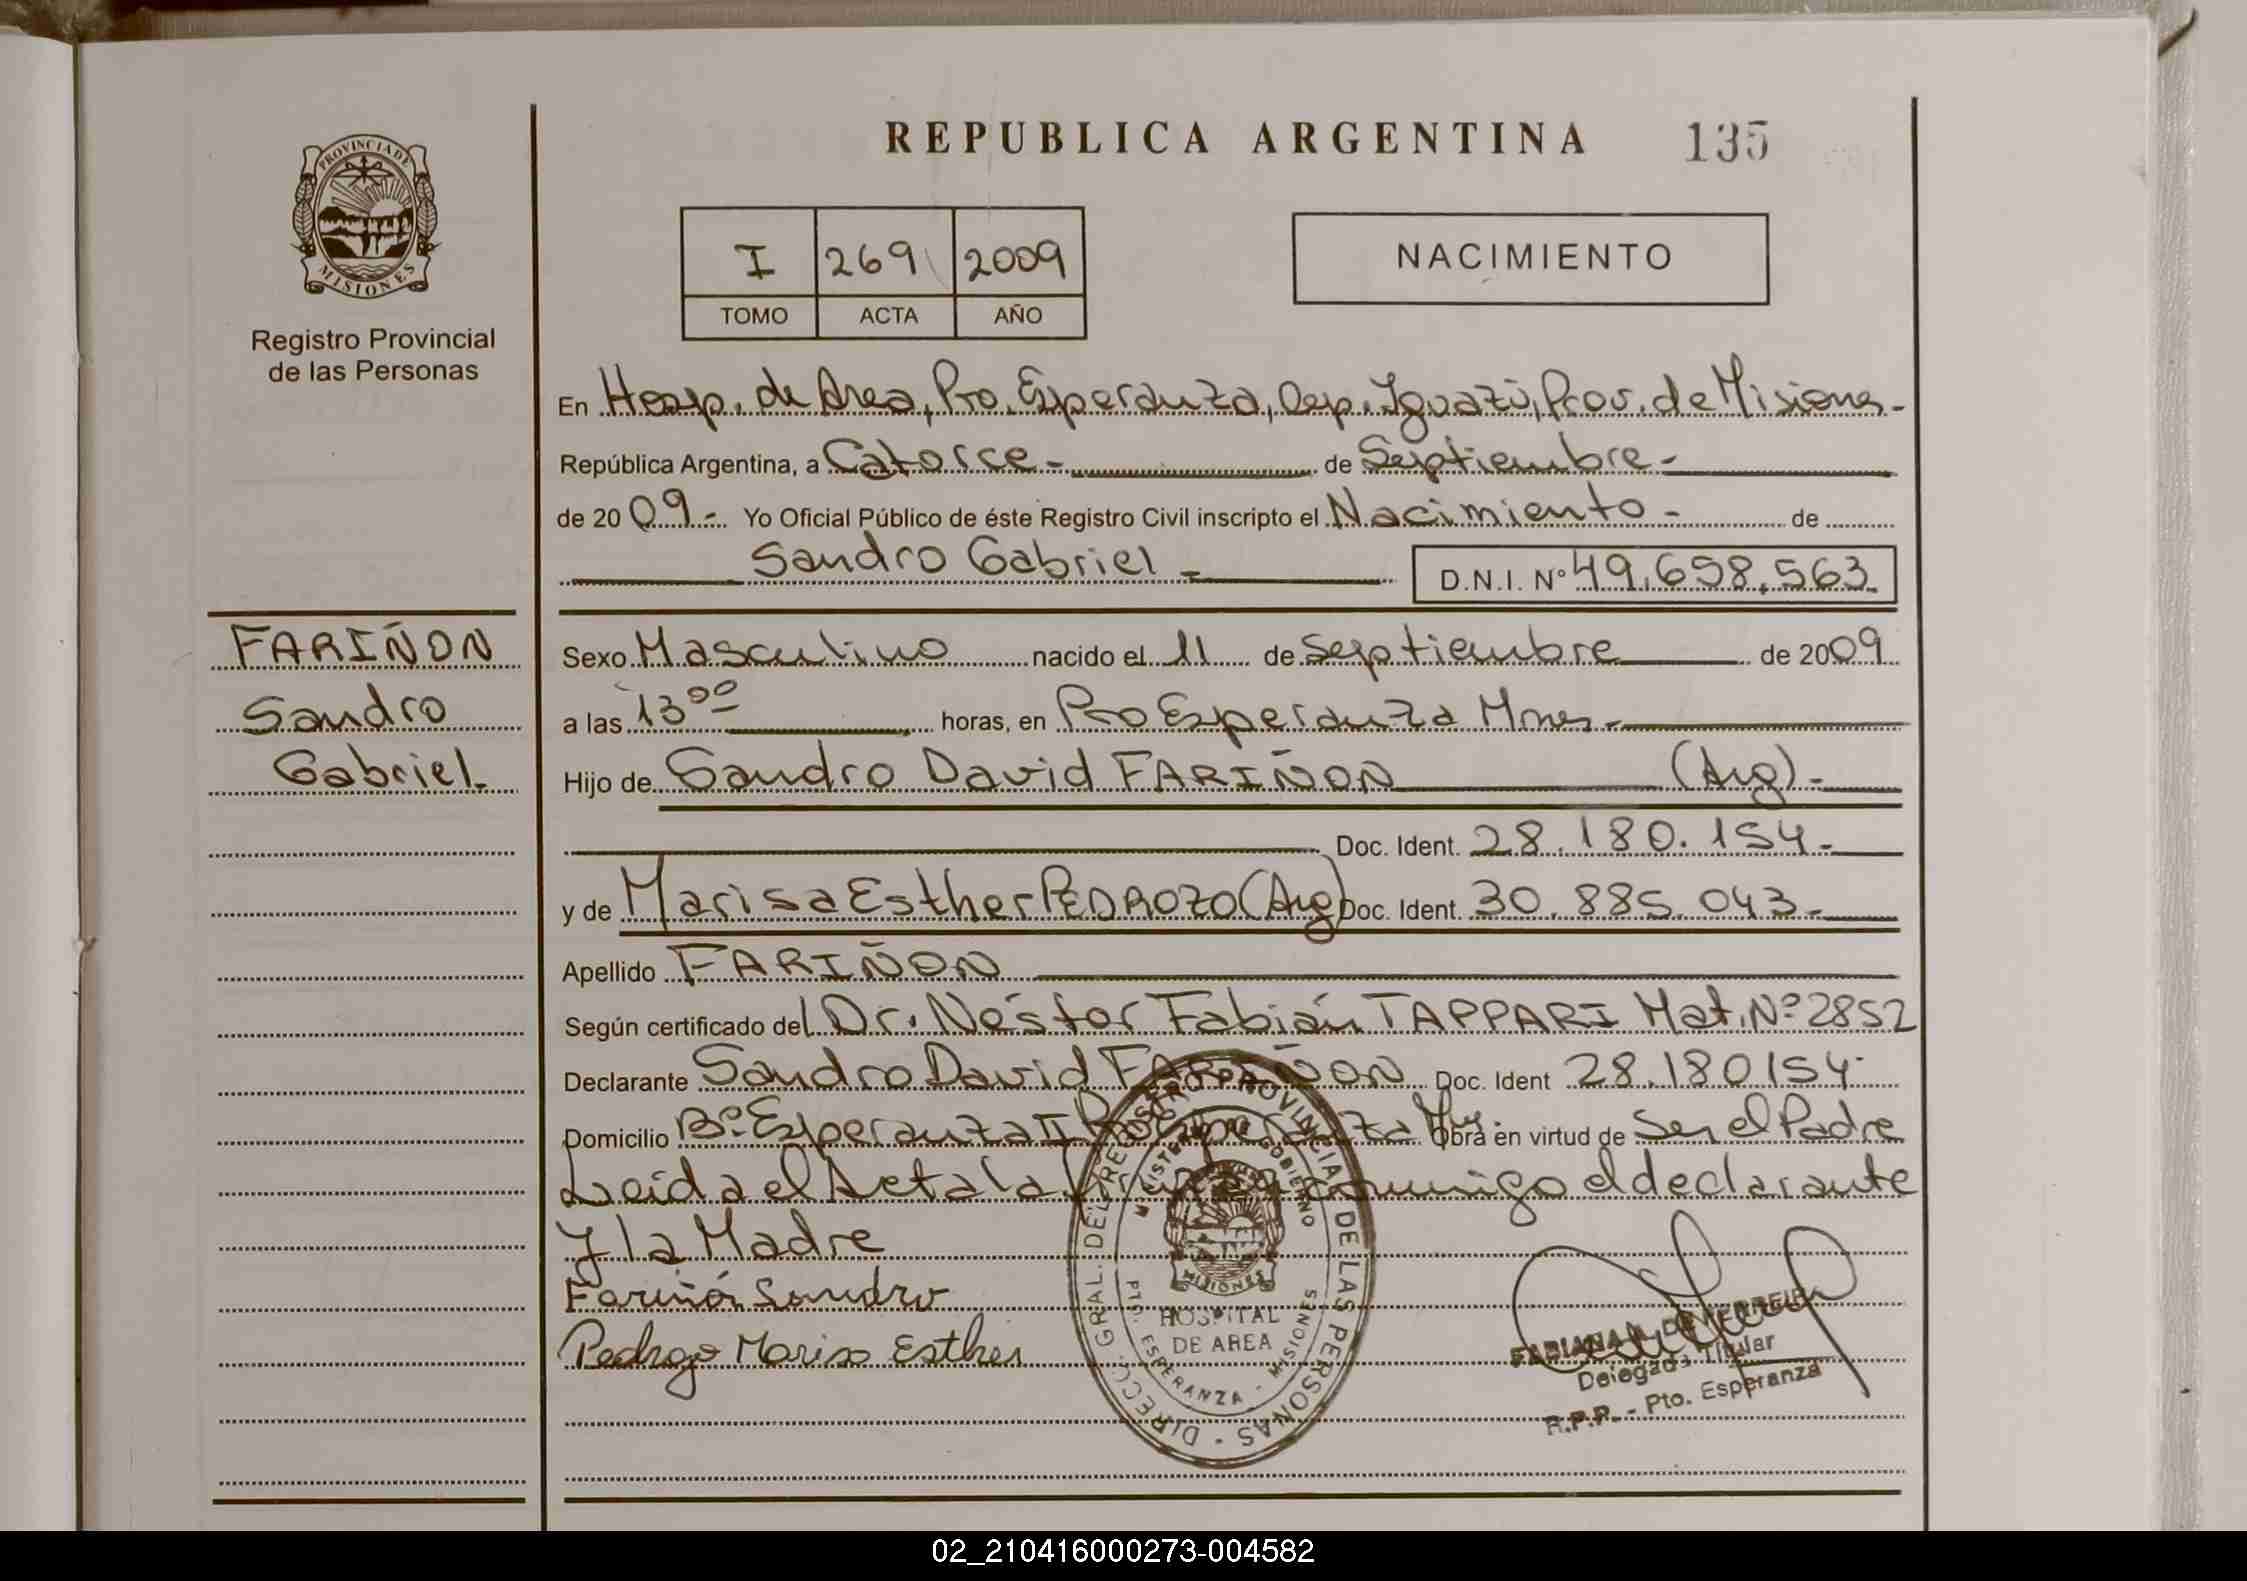 REPUBLICA ARGENTINA 135
PROVINCIA DE
MISIONES
Registro Provincial
de las Personas
I 269 2009
TOMO ACTA AÑO
NACIMIENTO
En Hosp. de Area, Pto. Esperanza, Dep. Iguazú, Prov. de Misiones-
República Argentina, a Catorce- de Septiembre-
de 2009.- Yo Oficial Público de éste Registro Civil inscripto el Nacimiento- de
Sandro Gabriel- D.N.I. Nº 49.698.563.
FARIÑON
Sandro
Gabriel.
Sexo Masculino nacido el 11 de Septiembre de 2009
a las 13 00 horas, en Pto Esperanza Mnes.-
Hijo de Sandro David FARIÑON (Arg).-
Doc. Ident. 28.180.154.-
y de Marisa Esther PEDROZO (Arg) Doc. Ident. 30.885.043.-
Apellido FARIÑON
Según certificado del Dr. Néstor Fabián TAPPARI Mat. Nº 2852
Declarante Sandro David FARIÑON Doc. Ident 28.180154-
Domicilio Bº Esperanza II Pto Esperanza Mnes. Obra en virtud de Ser el Padre
Leida el Acta la conmigo el declarante
y la Madre
Fariñón Sandro
Pedrozo Marisa Esther
DIRECC. GRAL. DEL REGISTRO PROVINCIAL DE LAS PERSONAS
MINISTERIO DE GOBIERNO
MISIONES
HOSPITAL
DE AREA
PTO. ESPERANZA - MISIONES
FABIANA
Delegada Titular
R.P.P. - Pto. Esperanza
02_210416000273-004582